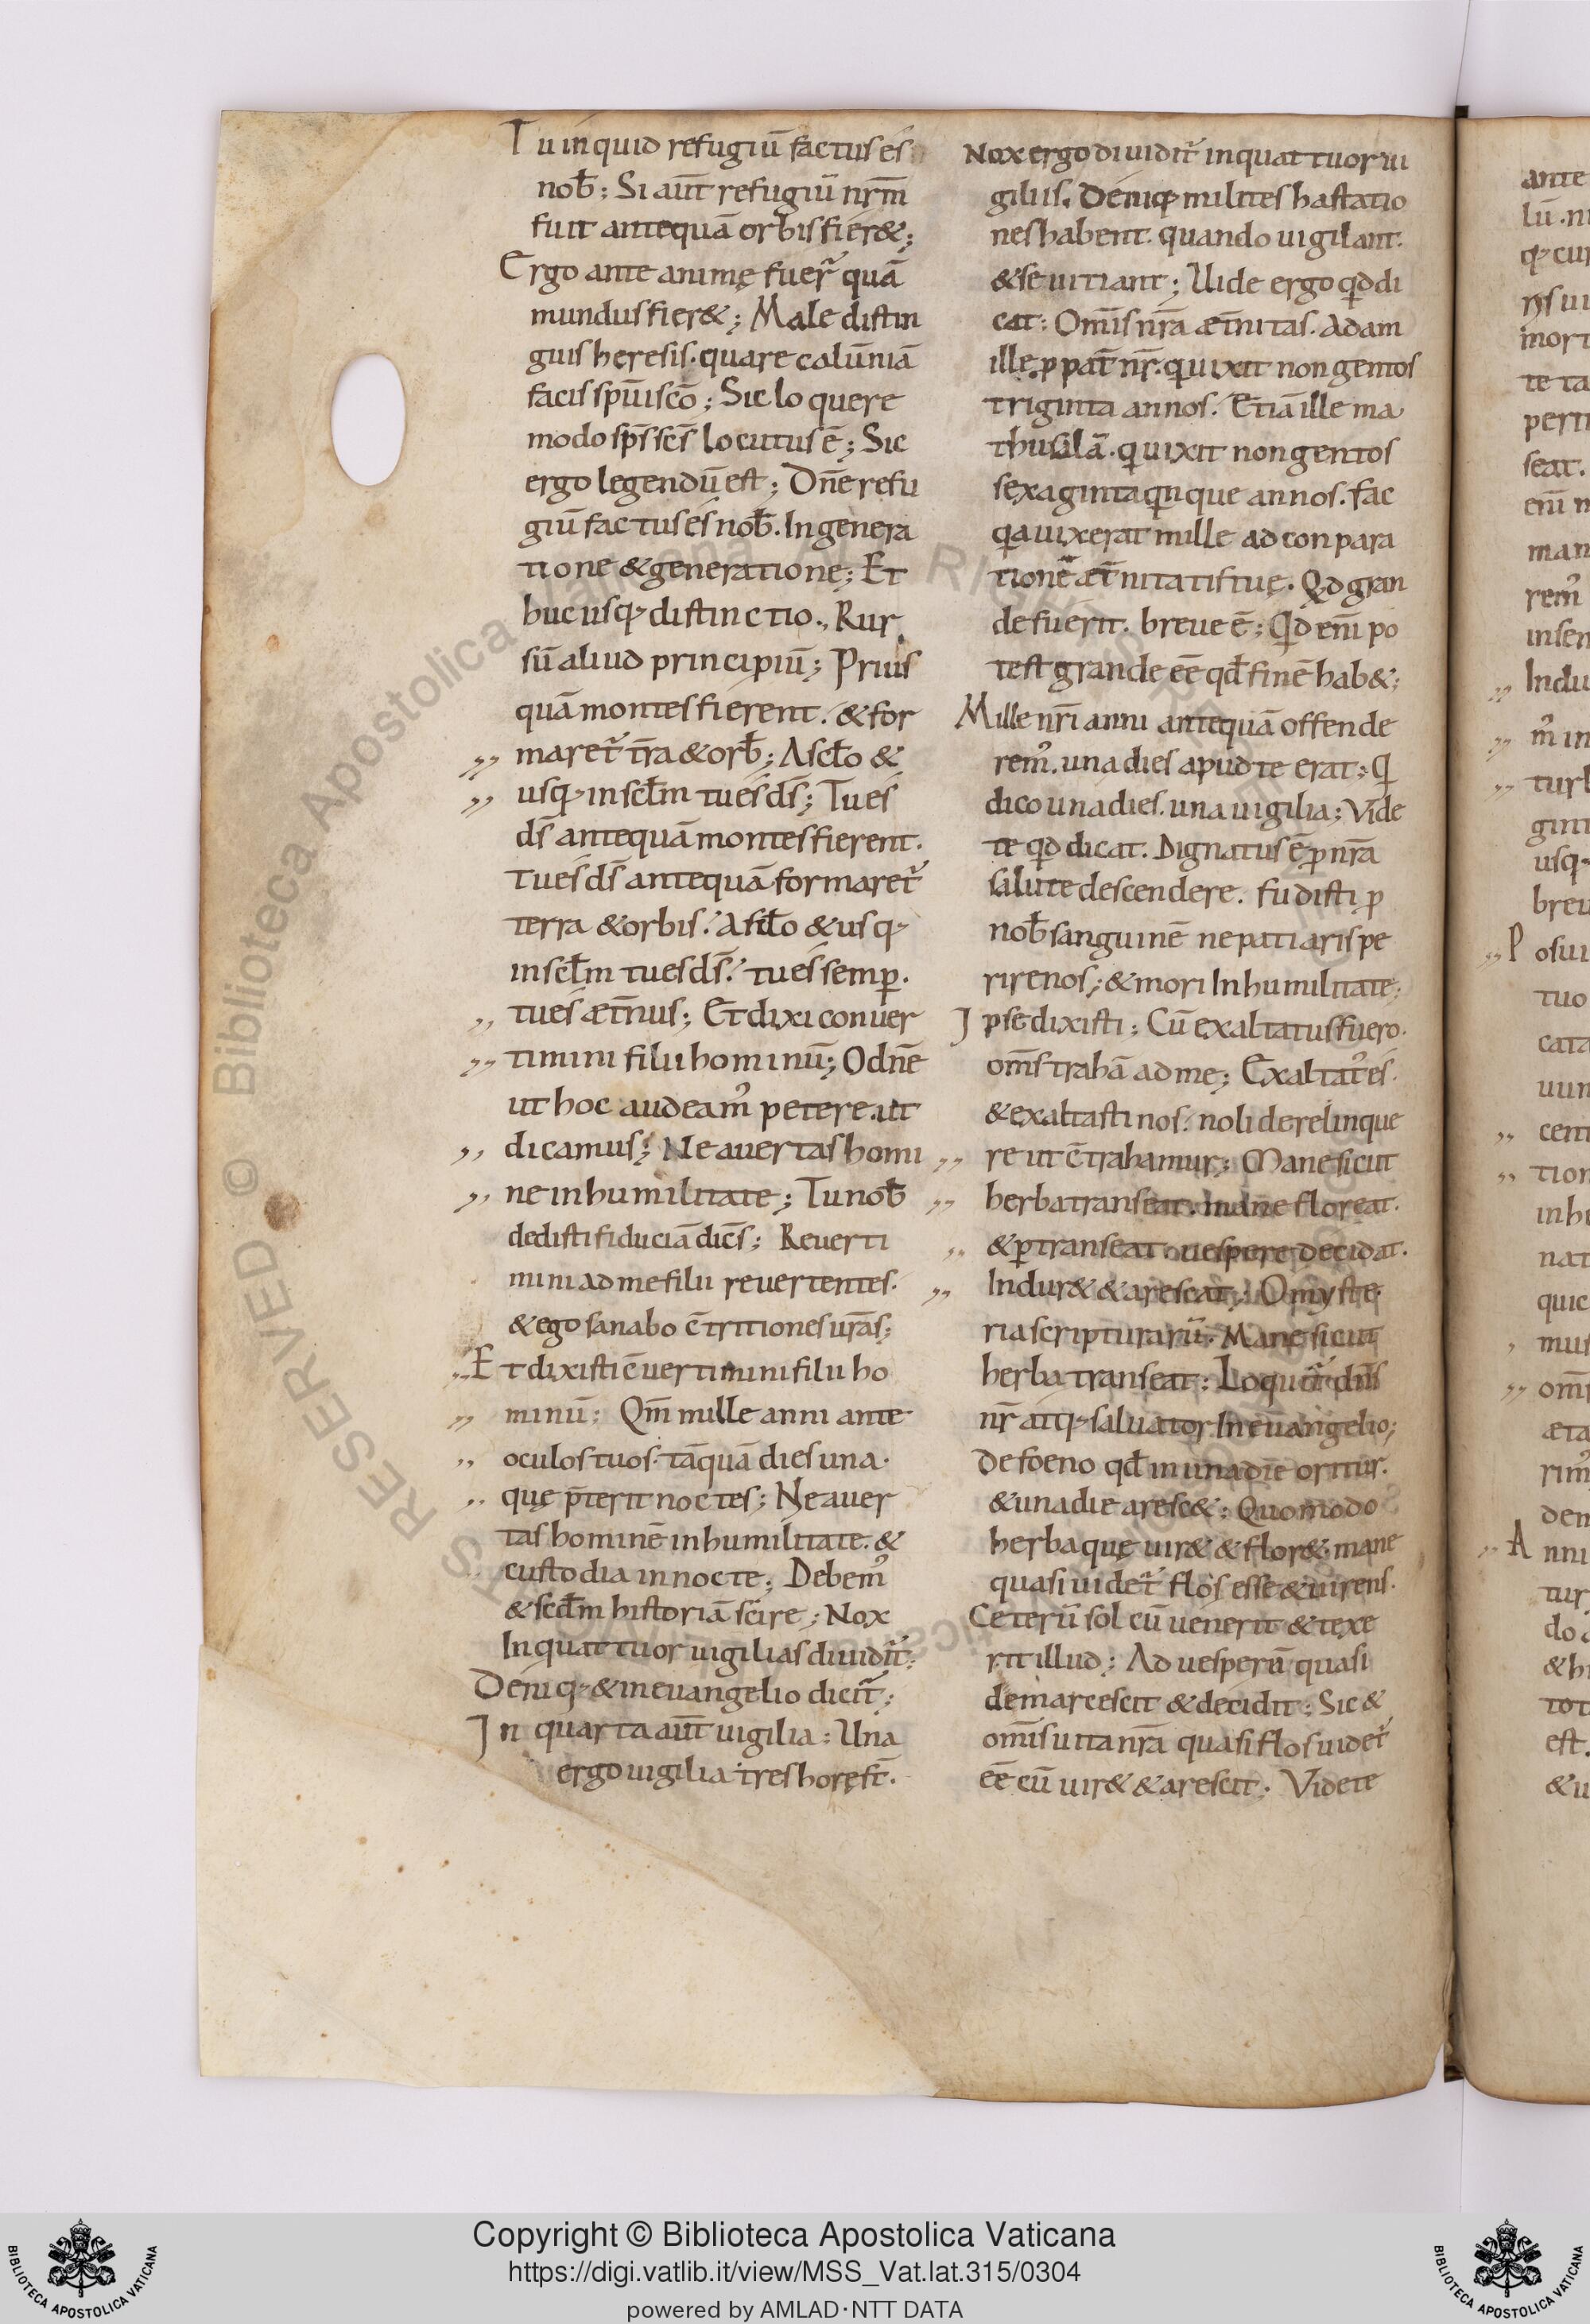 Tu inquid refugiū factus es
nob̄; Si aut̄ refugiū nr̄m
fuit antequā orbis fier&;
Ergo ante animę fuer̄ quā
mundus fier&; Male distin
guis heresis. quare calūniā
facis spūi scō; Sic loquere
modo sps̄ scs̄ locutus ē; Sic
ergo legendū est; Dn̄e refu
giū factus es nob̄. In genera
tione & generatione; Et
huc usq; distinctio., Rur
sū aliud principiū; Prius
quā montes fierent. & for
maret᷑ tr̄a & orb̄; A scl̄o &
usq; in scl̄m tu es ds̄; Tu es
ds̄ antequā montes fierent.
Tu es ds̄ antequā formaret᷑
terra & orbis. A scl̄o & usq;
in scl̄m tu es ds̄. tu es semꝑ.
tu es æt̄nus; Et dixi conuer
timini filii hominū; O dn̄e
ut hoc audeam᷒ petere. ut
dicamus; Ne auertas homi
nē in humilitate; Tu nob̄
dedisti fiduciā dicēs; Reuerti
mini ad me filii reuertentes.
& ego sanabo c̄tritiones ur̄as;
Et dixisti c̄uertimini filii ho
minū; Qm̄ mille anni ante
oculos tuos. tāquā dies una.
quę p̄terit noctes; Ne auer
tas hominē in humilitate. &
custodia in nocte; Debem᷒
& scd̄m historiā scire; Nox
In quattuor uigilias diuidit᷑;
Deniq; & in euangelio dicit᷑;
In quarta aut̄ uigilia; Una
ergo uigilia tres horę st̄.
Nox ergo diuidit᷑ in quattuor ui
giliis. Deniq; milites hastatio
nes habent. quando uigilant.
& se uitiant; Uide ergo qd di
cat; Omīs nr̄a æt̄nitas. Adam
ille ꝓpat̄ nr̄. q uixit nongentos
triginta annos. Etiā ille ma
thusalā. q uixit nongentos
sexaginta qnque annos. fac
qa uixerat mille ad conpara
tionē æt̄nitatis tuę. Qd gran
de fuerit. breue ē; Qd eni̅ po
test grande eē qd̄ finē hab&;
Mille nr̄i anni antequā offende
rem᷒. una dies apud te erat; Q
dico una dies. una uigilia; Vide
te qd dicat. Dignatus ē ꝓ nr̄a
salute descendere. fudisti ꝓ
nob̄ sanguinē ne patiaris pe
rire nos; & mori In humilitate;
Ipse dixisti; Cū exaltatus fuero.
om̄s trahā ad me; Exaltat᷒ es.
& exaltasti nos. noli derelinque
re ut c̄trahamur; Mane sicut
herba transeat. mane floreat.
& ꝑtranseat. uespere decidat.
Indur& & arescat; O myste
ria scripturarū. Mane sicut
herba transeat; Loquit᷑ dn̄s
nr̄ atq; saluator In euangelio;
De foeno qd̄ in una die oritur.
& una die aresc&; Quomodo
herba quę uir& & flor& mane
quasi uidet᷑ flos esse & uirens.
Ceterū sol cū uenerit & texe
rit illud; Ad uesperū quasi
demarcescit & decidit; Sic &
omīs uita nr̄a quasi flos uidet᷑
eē cū uir& & arescit; Videte
ante
Indu
turb
usq;
breu
Posui
tuo
cata
tion
inhu
mus
omīs
Anni
tur
est.
Copyright © Biblioteca Apostolica Vaticana
https://digi.vatlib.it/view/MSS_Vat.lat.315/0304
powered by AMLAD·NTT DATA
BIBLIOTECA APOSTOLICA VATICANA
BIBLIOTECA APOSTOLICA VATICANA